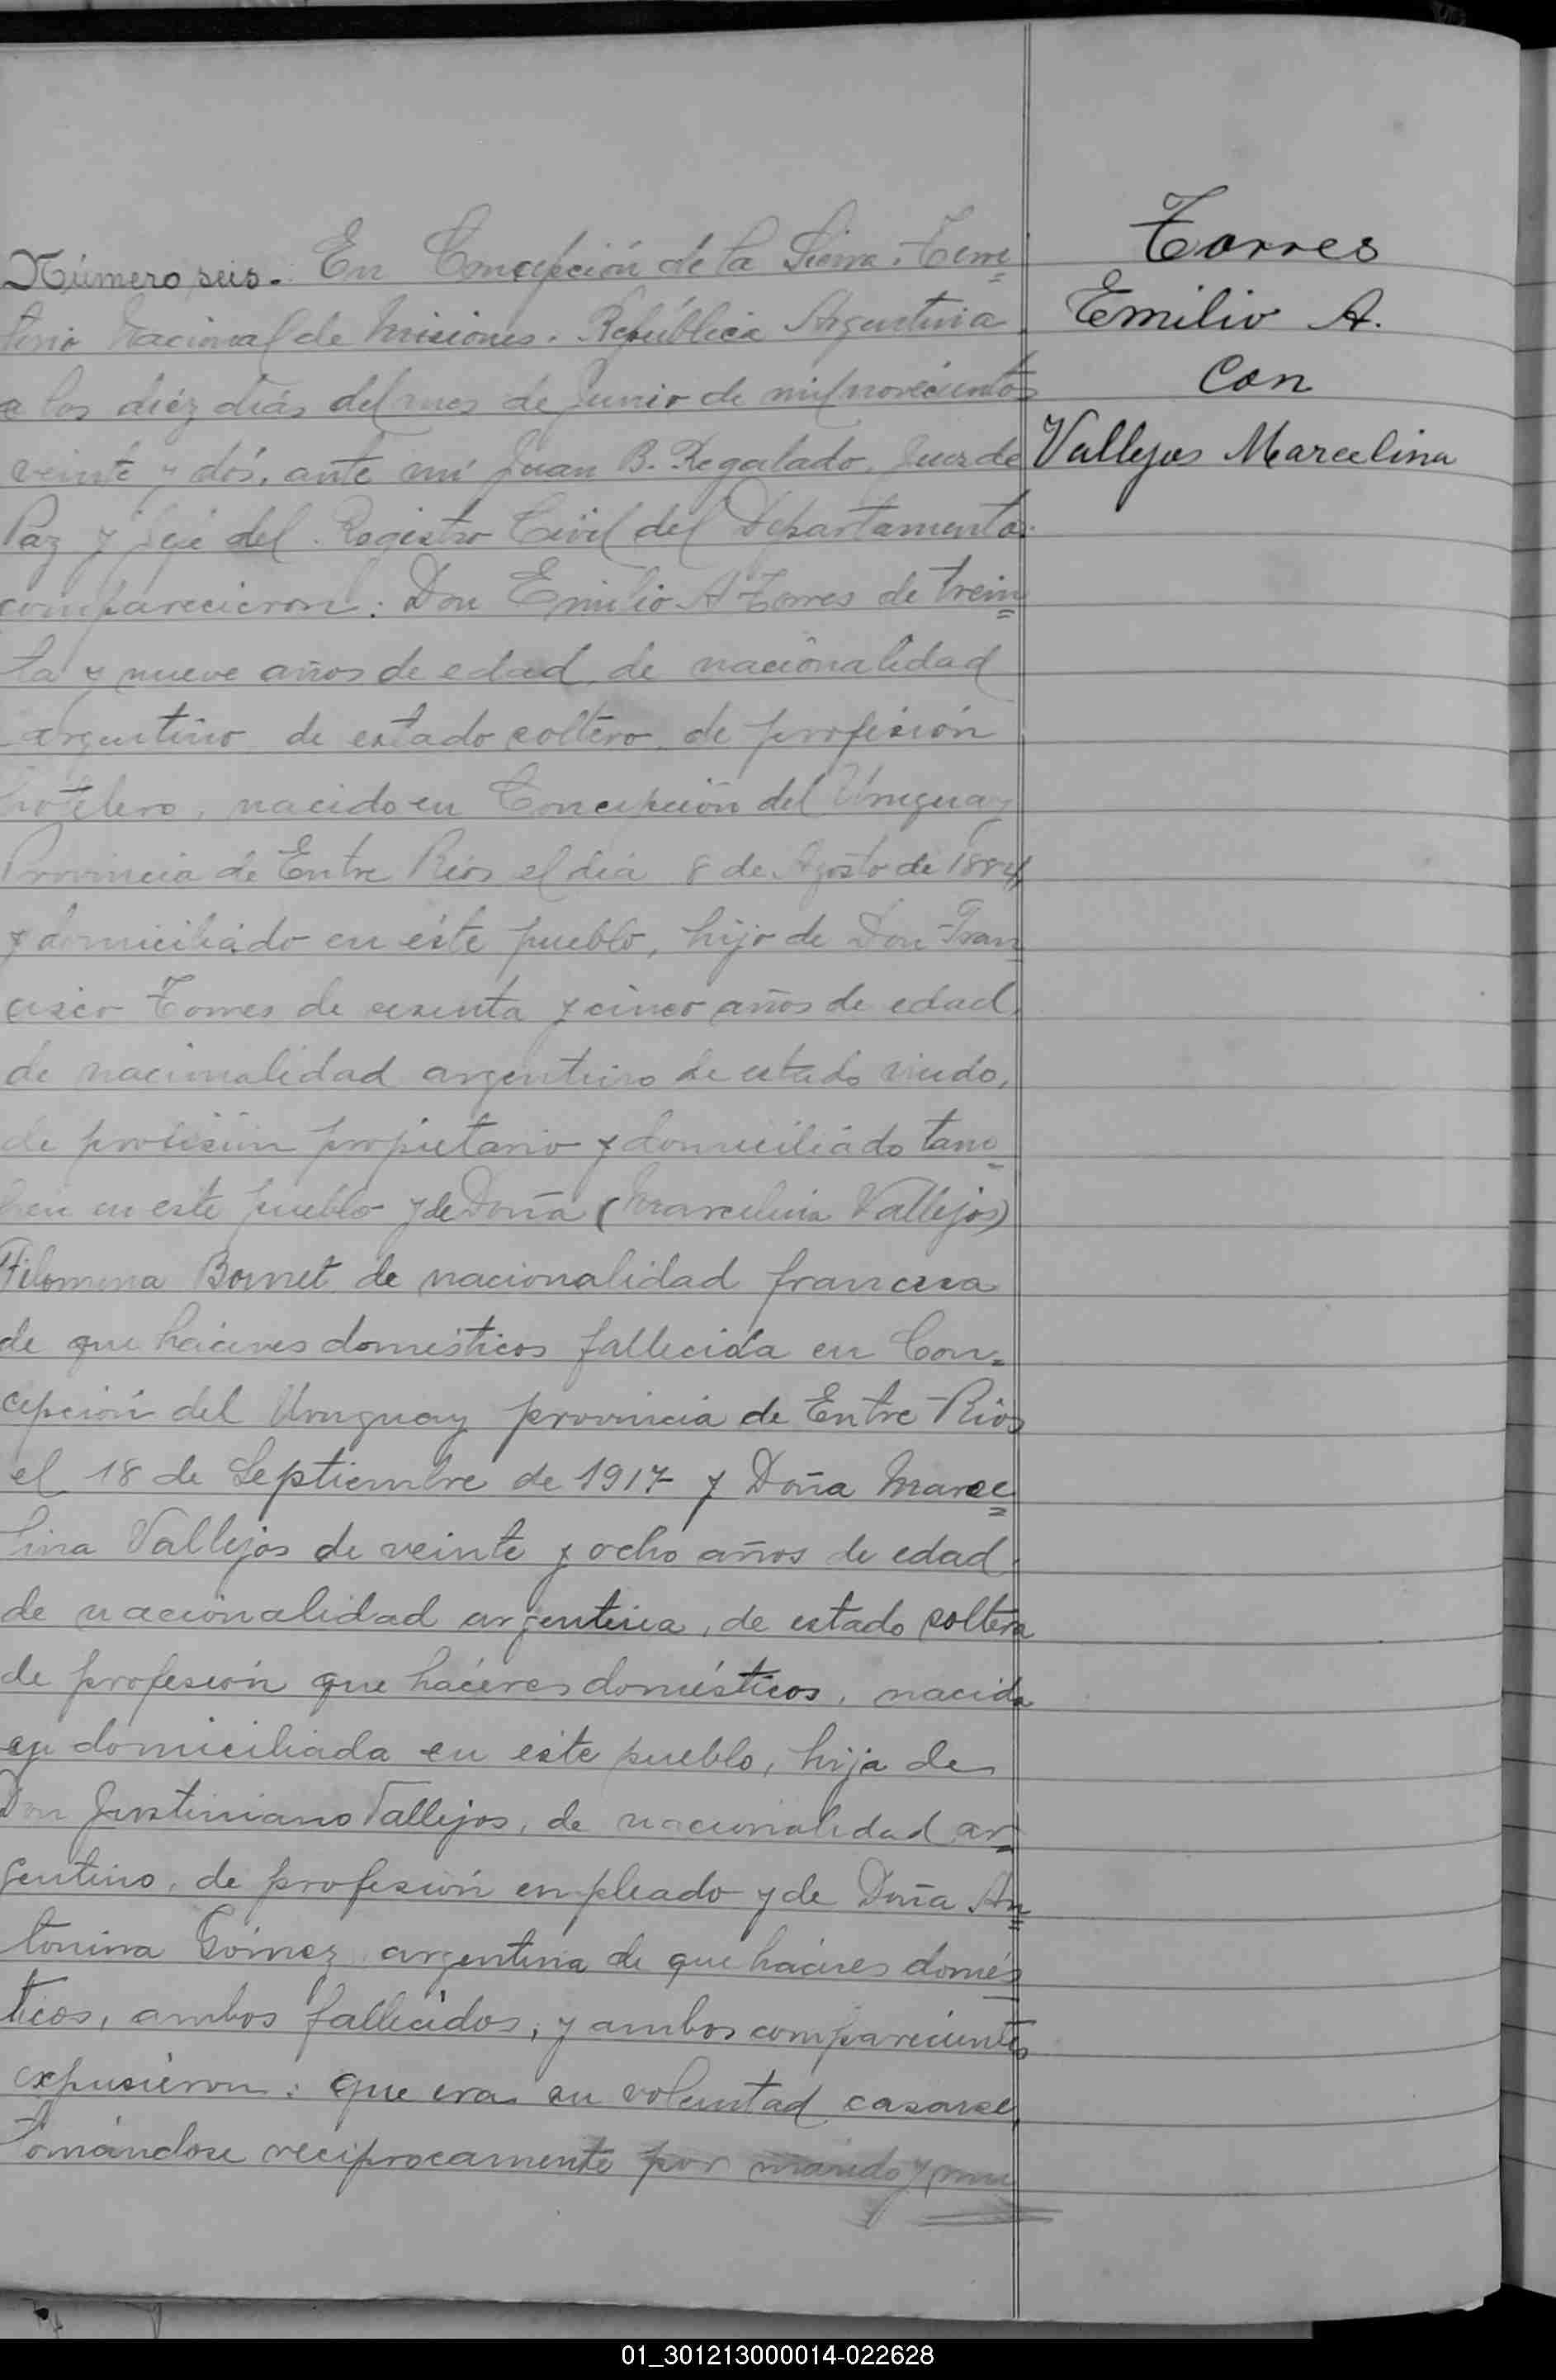 Número seis. En Concepción de la Sierra. Terri=
torio Nacional de Misiones. República Argentina
a los diéz diás del mes de Junio de mil novecientos
veinte y dós, ante mi Juan B. Regalado, Juez de
Paz y Jefe del Registro Civil del Departamento.
comparecieron: Don Emilio A Torres de trein=
ta y nueve años de edad, de nacionalidad
argentino de estado soltero, de profesión
hotelero, nacido en Concepción del Uruguay
Provincia de Entre Rios el dia 8 de Agosto de 1884,
y domiciliado en éste pueblo, hijo de Don Fran=
cisco Torres de sesenta y cinco años de edad,
de nacionalidad argentino de estado viudo,
de profesión propietario y domiciliado tam=
bien en este pueblo y de Doña (Marcelina Vallejos)
Filomena Bornet de nacionalidad francesa
de que háceres domésticos fallecida en Con=
cepción del Uruguay provincia de Entre Rios
el 18 de Septiembre de 1917 y Doña Marce=
lina Vallejos de veinte y ocho años de edad,
de nacionalidad argentina, de estado soltera
de profesión que háceres domésticos, nacida
y domiciliada en este pueblo, hija de
Don Justiniano Vallejos, de nacionalidad ar=
gentino, de profesión empleado y de Doña An=
tonina Gómez argentina de que háceres domés
ticos, ambos fallecidos, y ambos comparecientes
expusieron: que era su voluntad casarse,
tomándose reciprocamente por marido y mu
Torres
Emilio A.
Con
Vallejos Marcelina
01_301213000014-022628